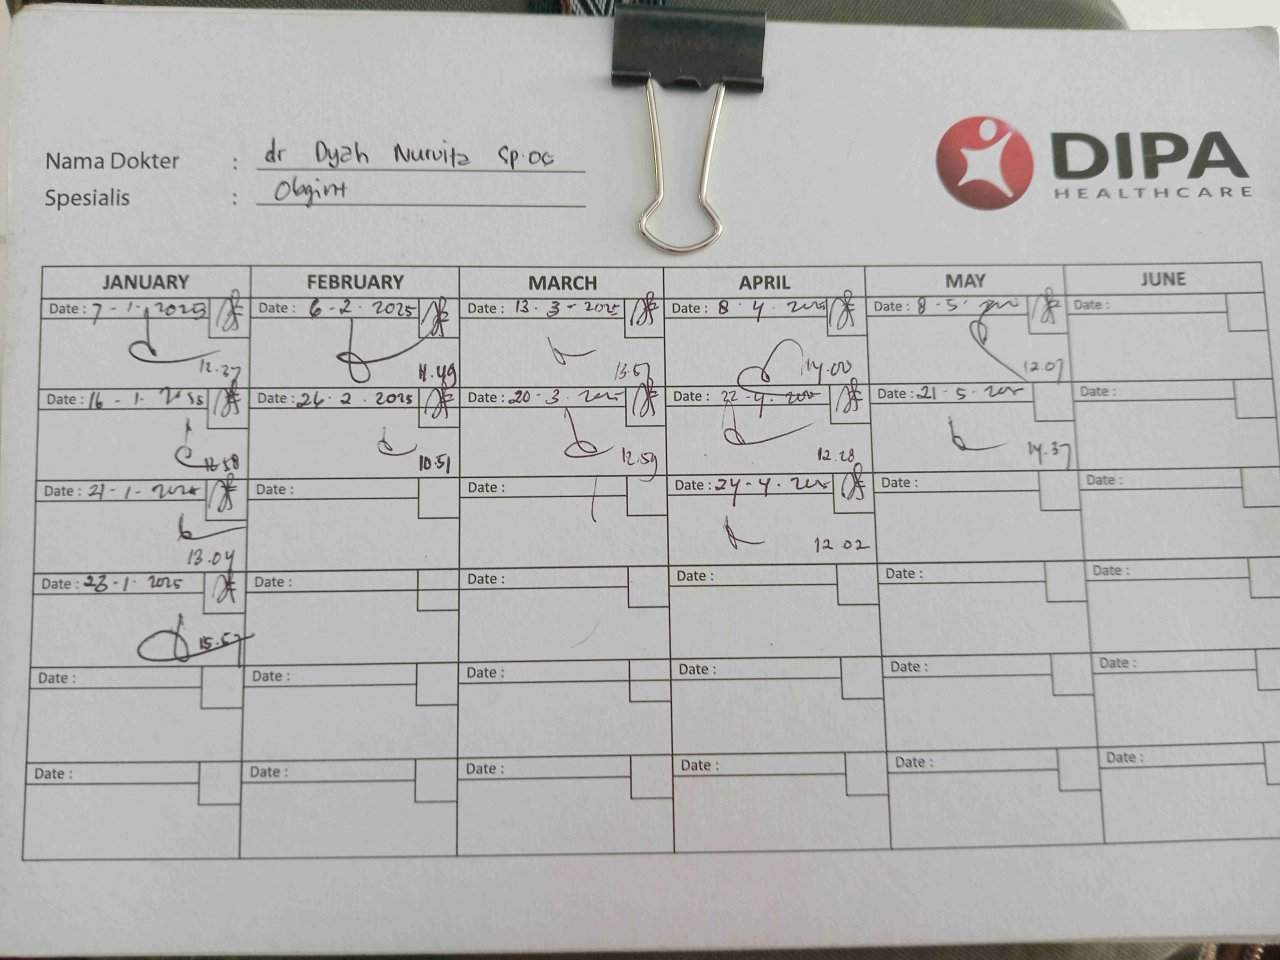 DIPA
HEALTHCARE
Nama Dokter : dr Dyah Nurvita Sp.OG
Spesialis : Obgin
JANUARY FEBRUARY MARCH APRIL MAY JUNE
Date : 7 - 1 - 2025 Date : 6 - 2 - 2025 Date : 13 - 3 - 2025 Date : 8 - 4 - 2025 Date : 8 - 5 - Date :
12.37 11.49 13.57 14.00 12.07
Date : 16 - 1 - 2025 Date : 26 - 2 - 2025 Date : 20 - 3 - 2025 Date : 22 - 4 - 2025 Date : 21 - 5 - 2025 Date :
12.58 10.51 12.59 12.28 14.37
Date : 21 - 1 - 2025 Date : Date : Date : 24 - 4 - 2025 Date : Date :
13.04 12.02
Date : 23 - 1 - 2025 Date : Date : Date : Date : Date :
15.57
Date : Date : Date : Date : Date : Date :
Date : Date : Date : Date : Date : Date :